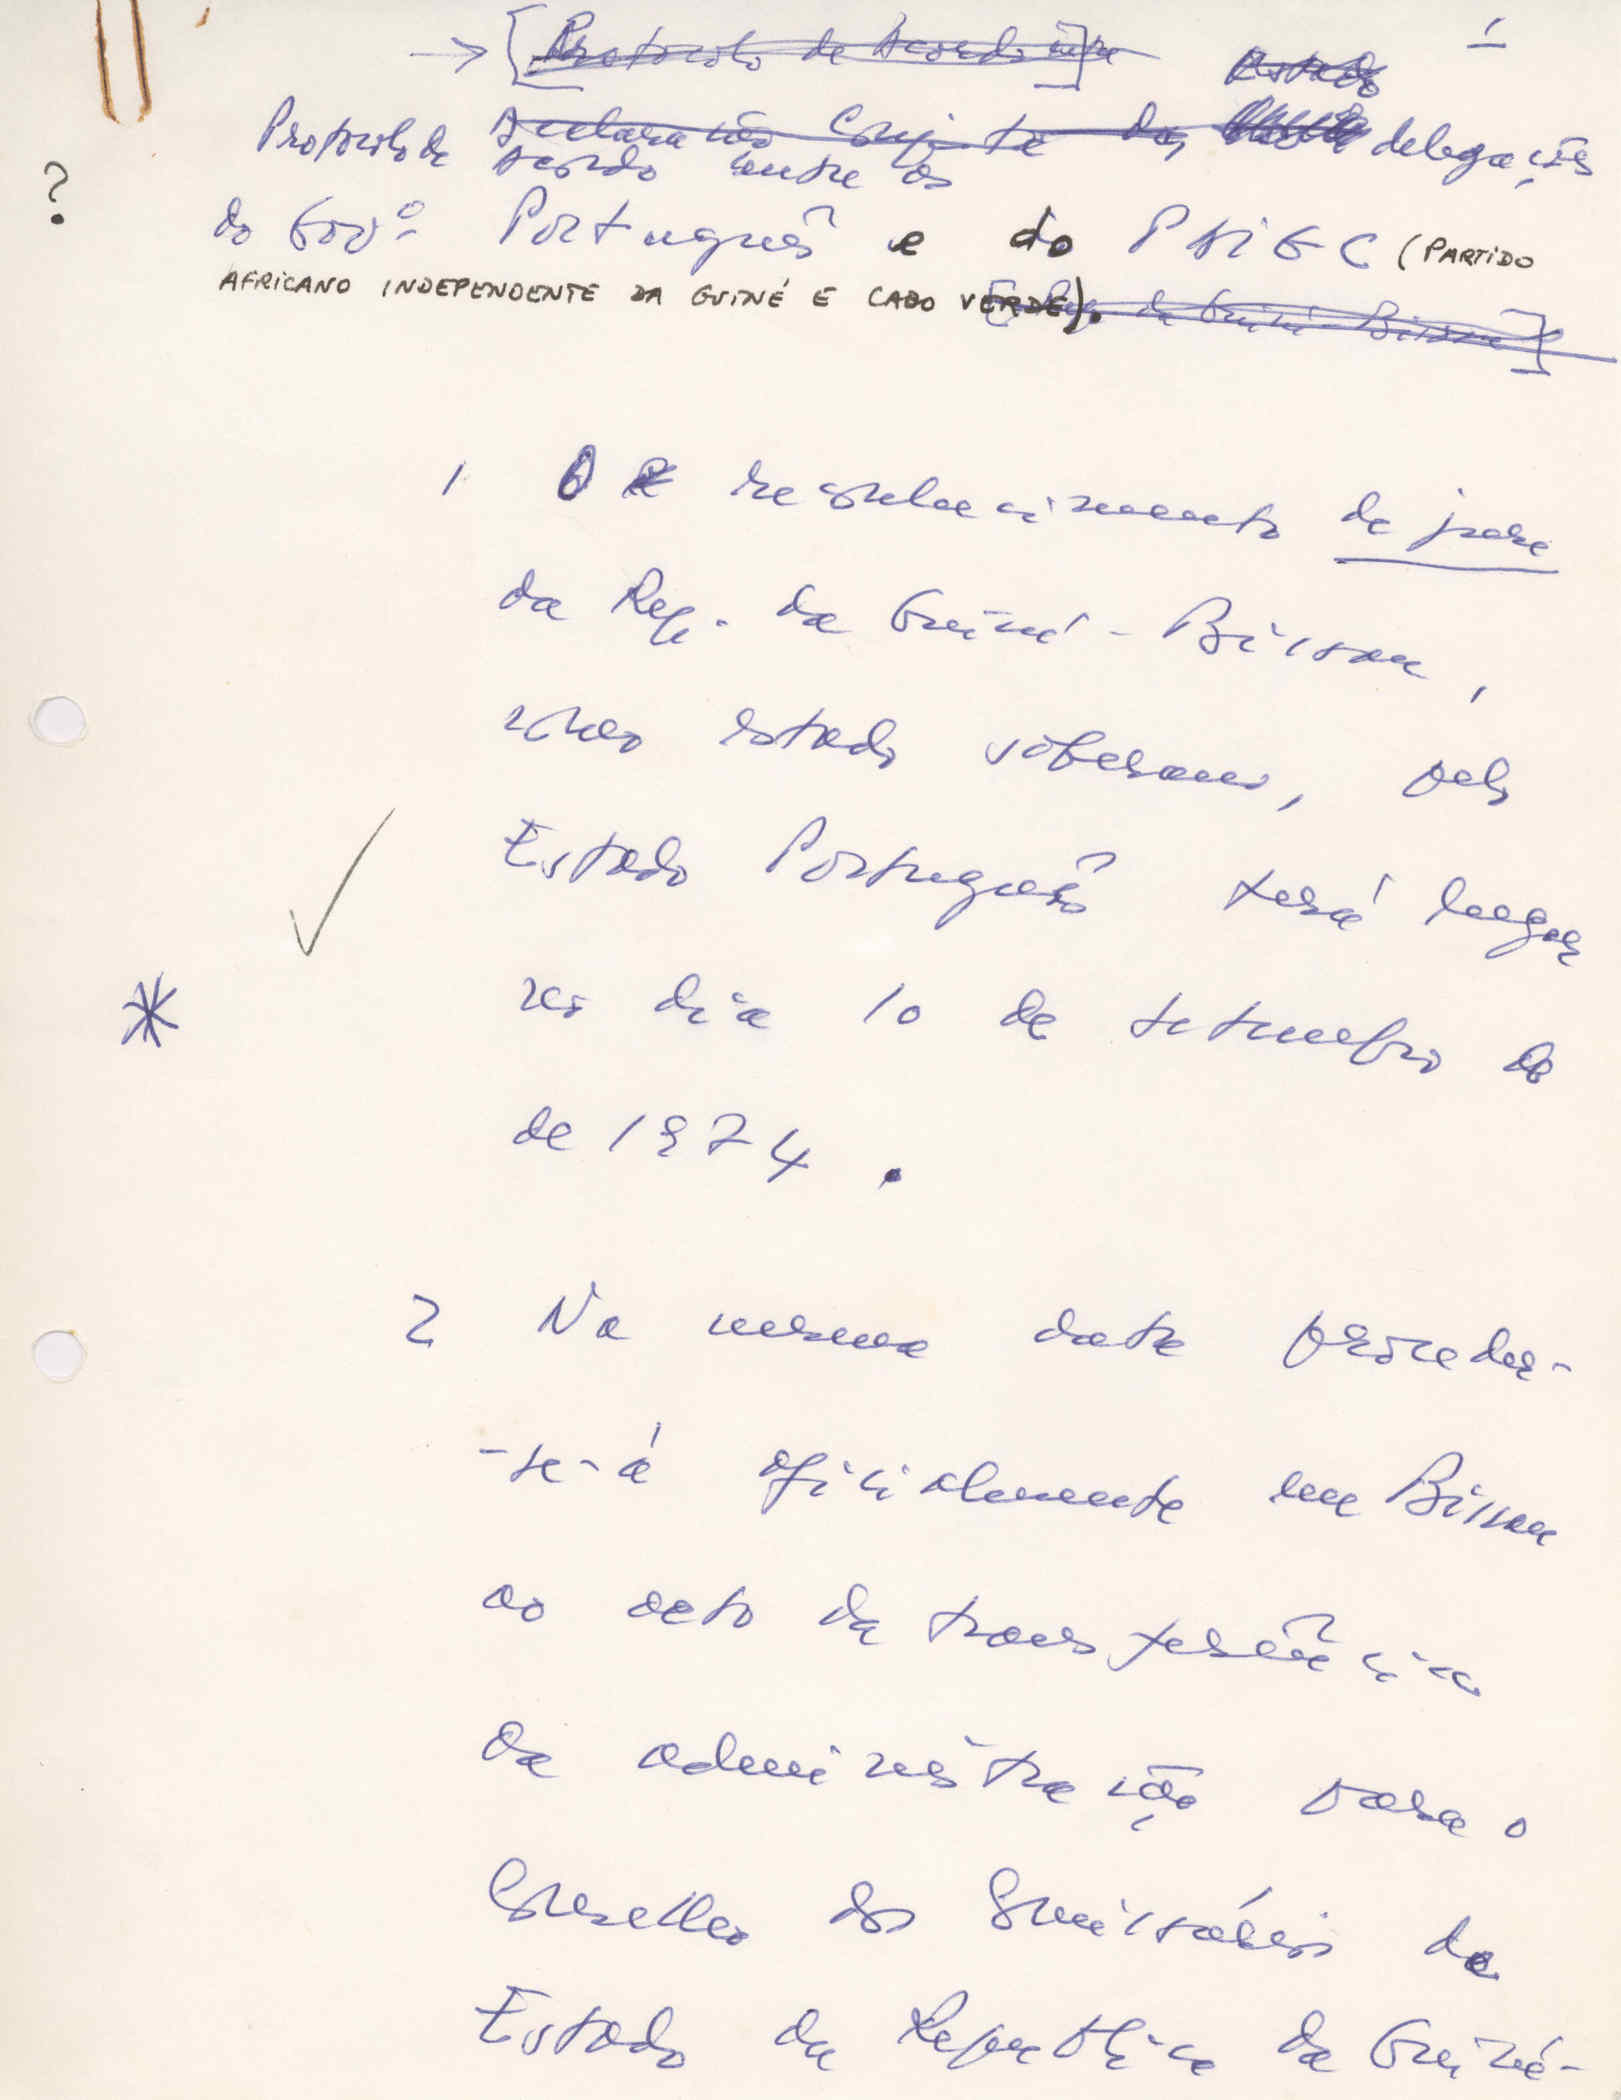 1
→ [Protocolo de Acordo entre]
Estado
Protocolo de Declaração Conjunta das delegações
Acordo entre as
do Govº Português e do PAIGC (PARTIDO
AFRICANO INDEPENDENTE DA GUINÉ E CABO VERDE).
[Rep. da Guiné-Bissau]
?
1 O reconhecimento de jure
da Rep. da Guiné-Bissau,
como estado soberano, pelo
Estado Português terá lugar
no dia 10 de setembro
de 1974.
2 Na mesma data proceder-
-se-á oficialmente em Bissau
ao acto da transferência
da administração para o
Conselho dos Comissários de
Estado da Republica da Guiné-